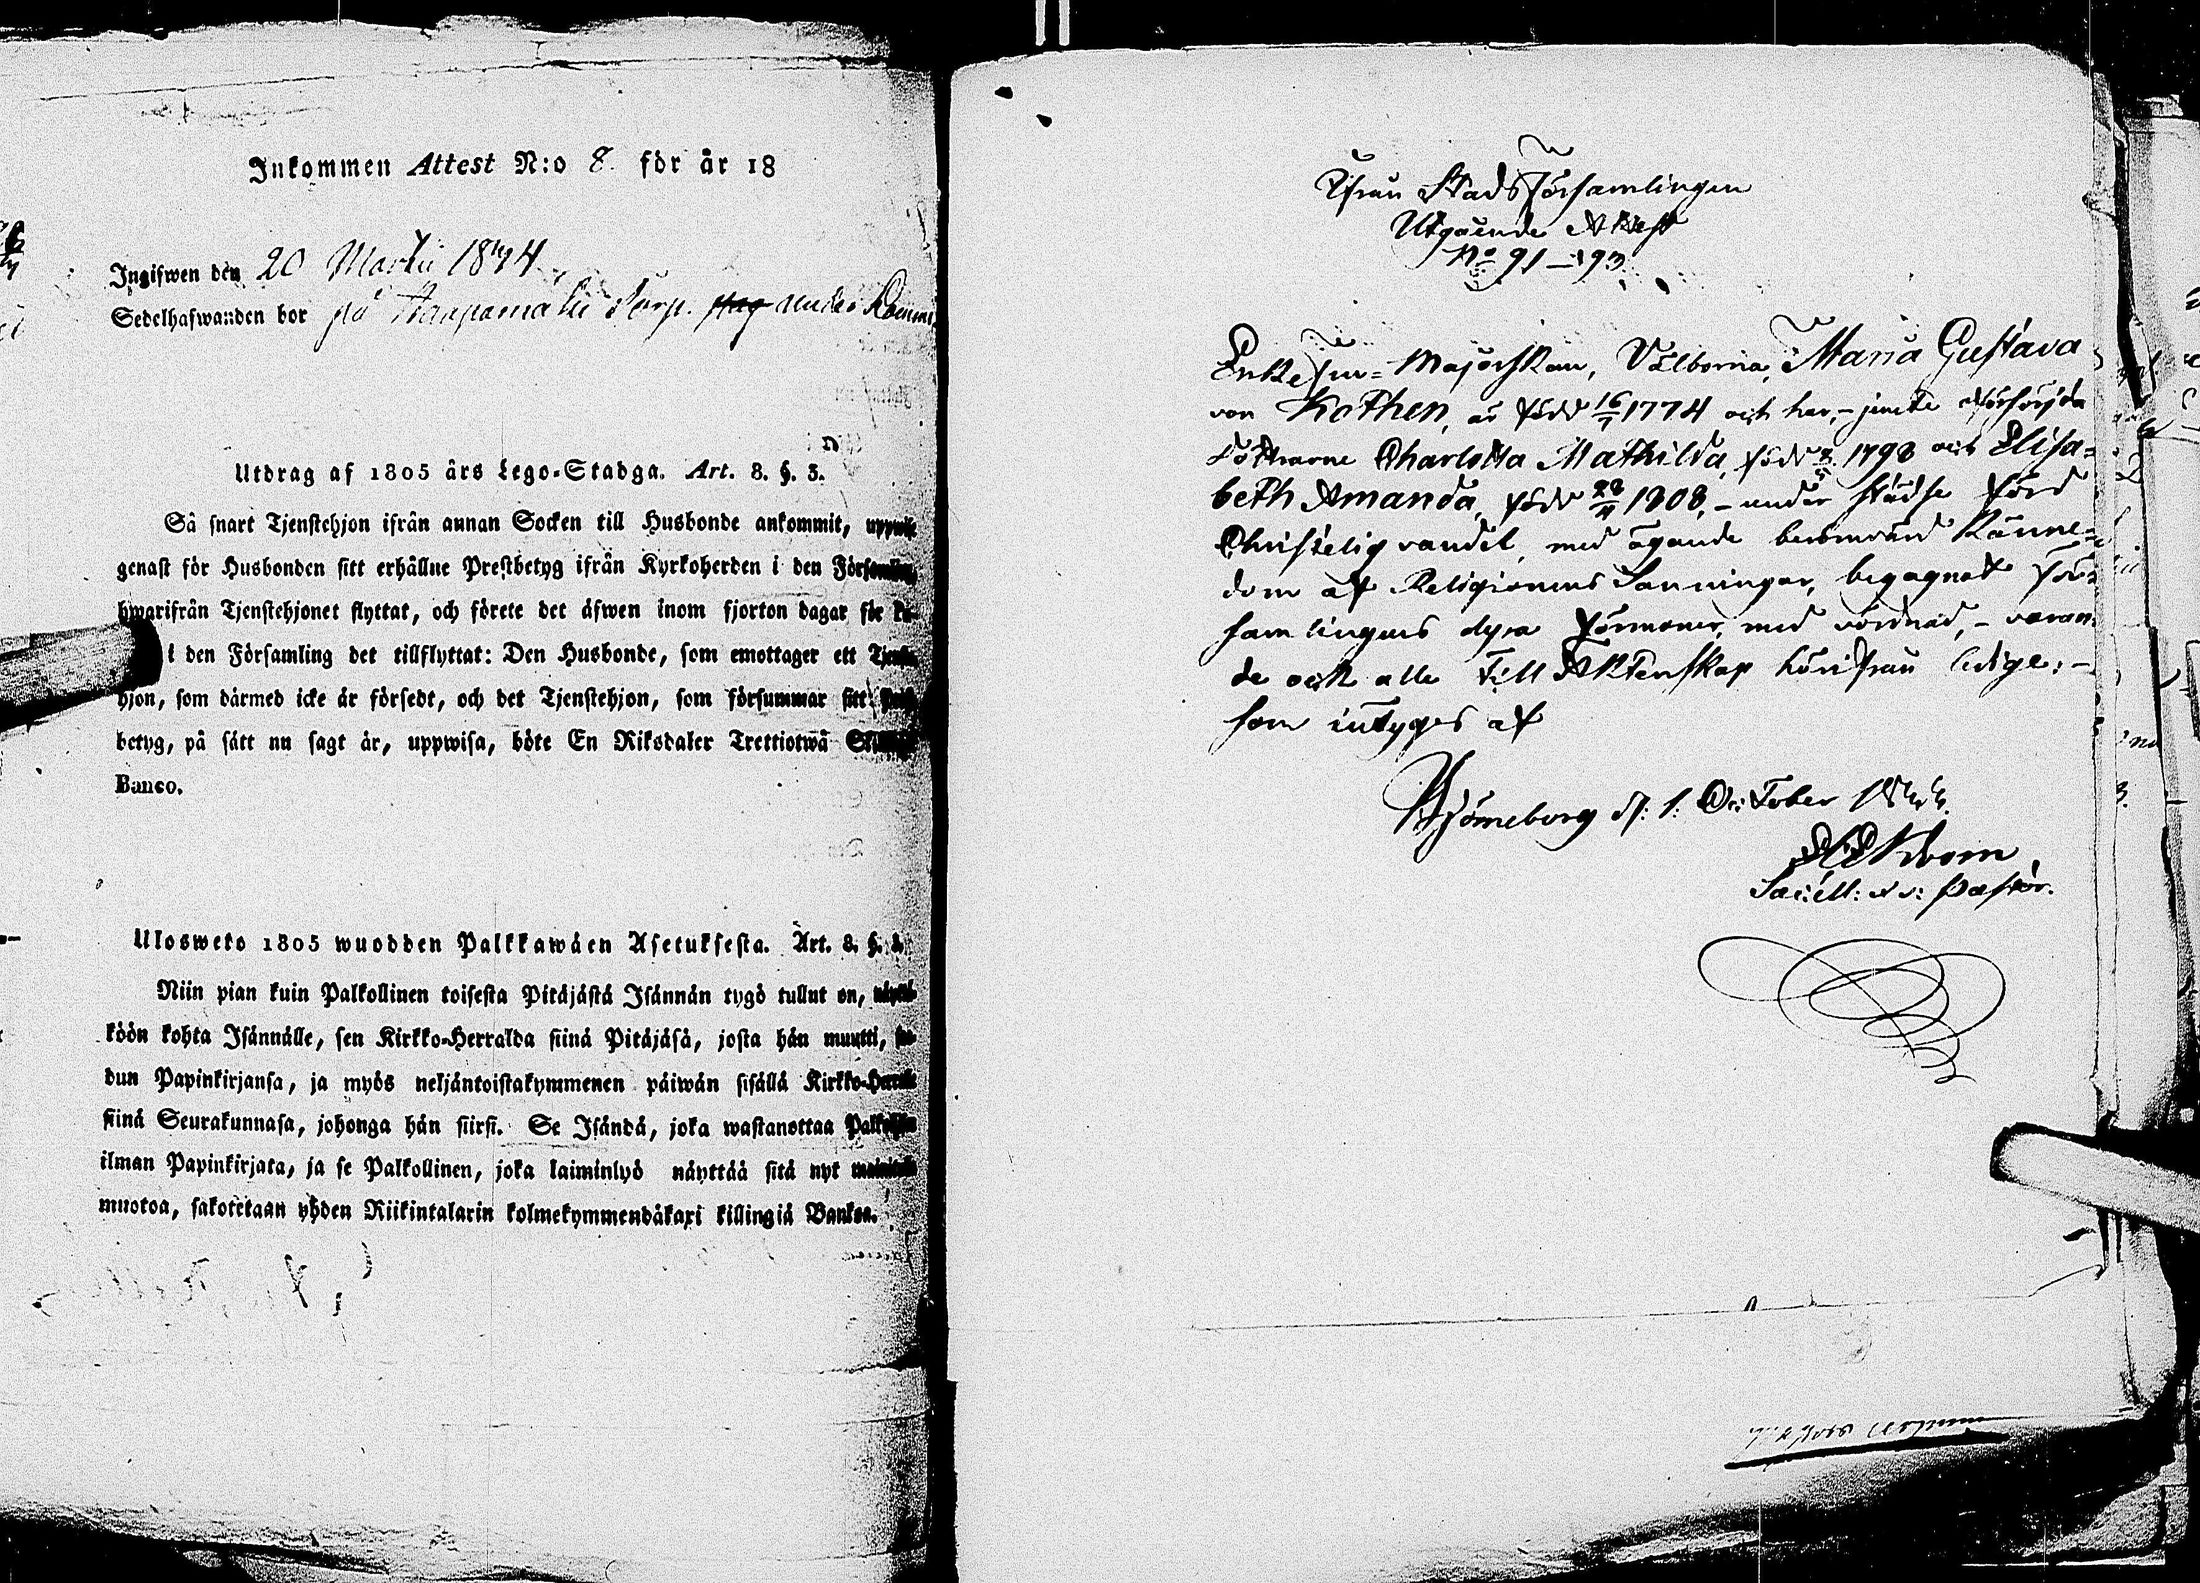 Inkommen Attest N:o 8. för år 18
Ingifwen den 20 Martii 1844
Sedelhafwanden bor på torp. under
Utdrag af 1805 års Lego-Stadga. Art. 8. §. 3.
Så snart Tjenstehjon ifrån annan Socken till Husbonde ankommit,
genast för Husbonden sitt erhållne Prestbetyg ifrån Kyrkoherden i den
hwarifrån Tjenstehjonet flyttat, och förete det äfwen inom fjorton dagar för
i den Församling det tillflyttat: Den Husbonde, som emottager ett
hjon, som därmed icke är försedt, och det Tjenstehjon, som försummar sitt
betyg, på sätt nu sagt är, uppwisa, böte En Riksdaler Trettiotwå
Banco.
Ulosweto 1805 wuodden Palkkawäen Asetuksesta. Art. 8. §.
Niin pian kuin Palkollinen toisesta Pitäjästä Isännän tygö tullut on,
köön kohta Isännälle, sen Kirkko-Herralda siinä Pitäjäsä, josta hän muutti,
dun Papinkirjansa, ja myös neljäntoistakymmenen päiwän sisällä
siinä Seurakunnasa, johonga hän siirsi. Se Isändä, joka wastanottaa
ilman Papinkirjata, ja se Palkollinen, joka laiminlyö näyttää sitä nyt
muotoa, sakotetaan yhden Riikintalarin kolmekymmendäkaxi killingiä Bankoa.
Ifrån Stads Församlingen
Utgående Attest
No 91–93.
Enkefru-Majorskan, Välborna, Maria Gustava
von Kothen, är född 16/7 1774 och har, – jemte
döttrarne Charlotta Mathilda, född 1798 och Elisa-
beth Amanda, född 1808, – under städse förd
Christelig vandel, med ägande berömvärd Känne-
dom af Religionens Sanningar, begagnat för-
samlingens dyra förmoner, med vördnad, – varan-
de ock alla till Äktenskap härifrån lediga; –
som intygas af
Björneborg d: 1. October 1844.
Sacell: v: Pastor.